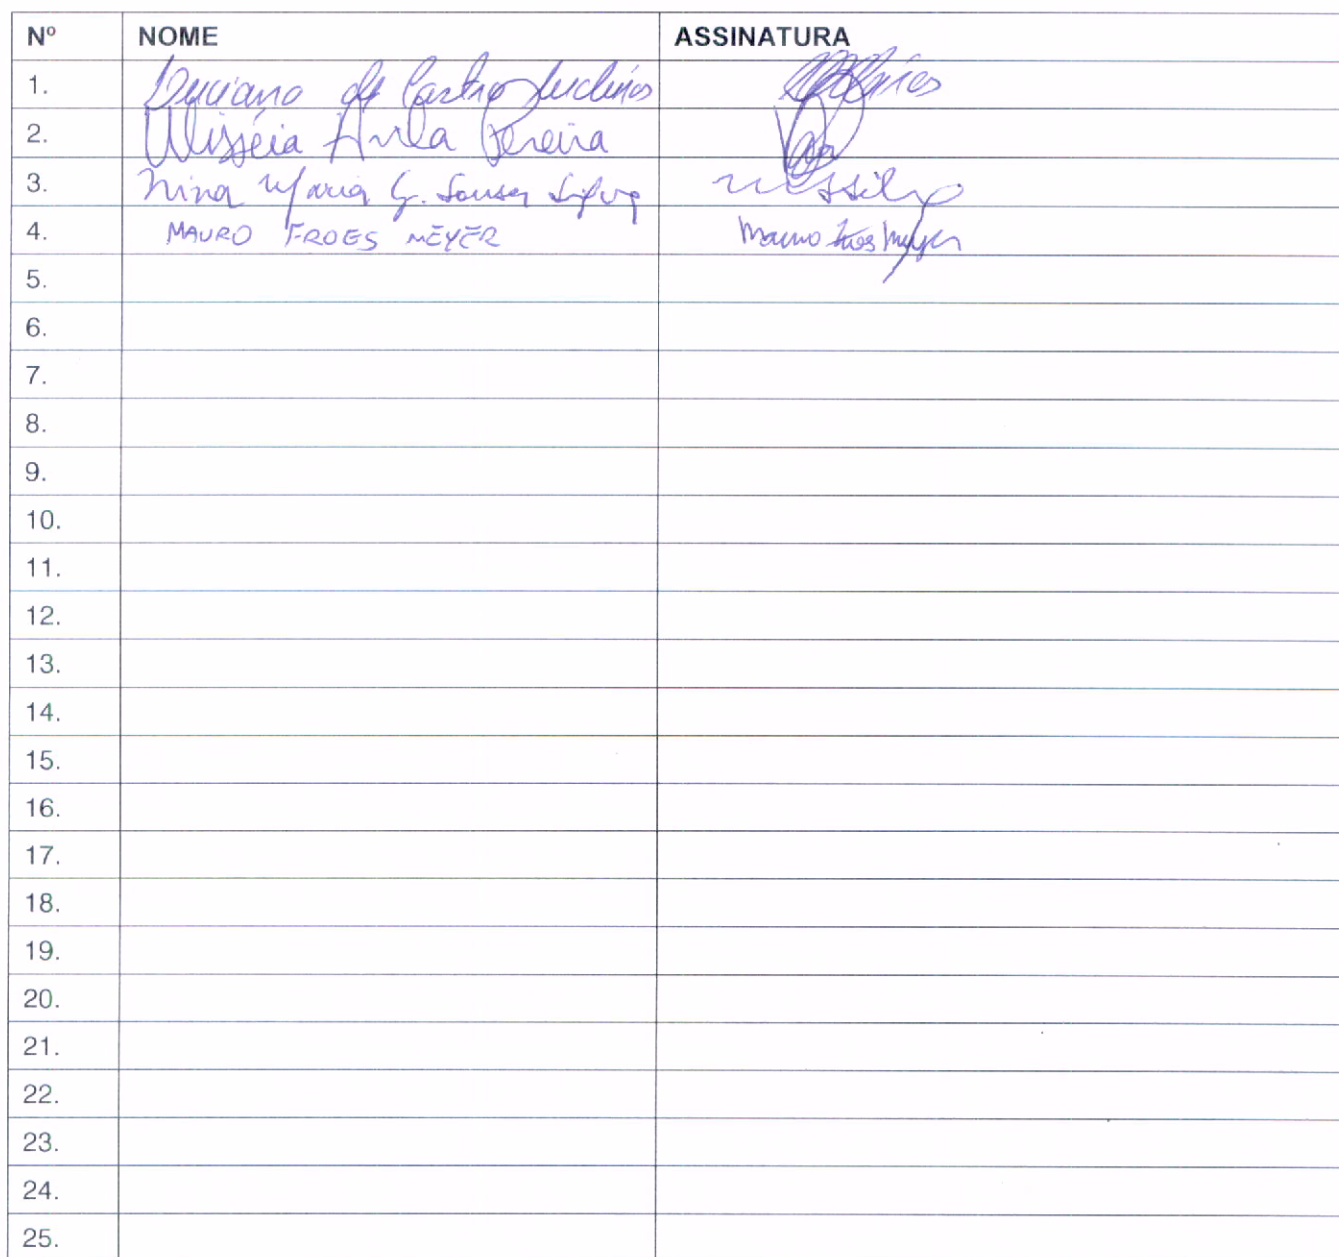 Nº NOME ASSINATURA
1. Luciano de Castro
2. Ulisséia Avila Pereira
3. Nina Maria G. Sousa Silva
4. MAURO FROES MEYER Mauro Froes Meyer
5.
6.
7.
8.
9.
10.
11.
12.
13.
14.
15.
16.
17.
18.
19.
20.
21.
22.
23.
24.
25.